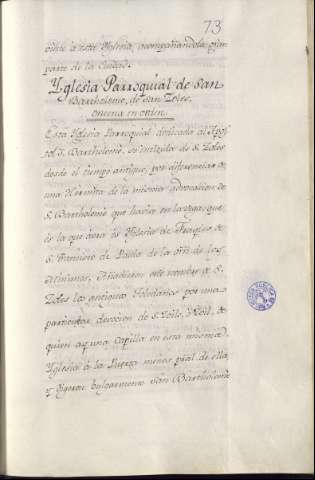 73
viene a esta Yglesia, acompañandola gran
parte de la Ciudad.
Yglesia Parroquial de San
Bartholome, de San Zoles,
oncena en orden.
Esta Yglesia Parroquial dedicada al Apos-
tol S. Bartholome, se intitula de S. Zoles
desde el tiempo antiguo, por diferenciar a
una Hermita de la misma advocacion de
S. Bartholome que havia en la vega, que
es la que aora es Yglesia de Frayles de
S. Francisco de Paula de la orden de los
Minimos. Añadieron este nombre a S.
Zoles los antiguos Toledanos por una
particular devocion de S. Zoilo, Mártir, de
quien ay una Capilla en esta misma
Yglesia a la Puerta menos pral de ella,
y dijeron bulgarmente San Bartholome